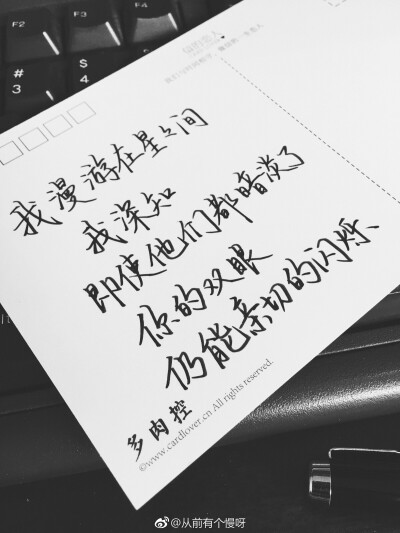 F2
F3
F4
#
3
$
4
我漫游在星星之间
我深知
即使他们都暗淡了
你的双眼
仍能亲切的闪烁
多肉控
©www.cardlover.cn All rights reserved.
@从前有个慢呀